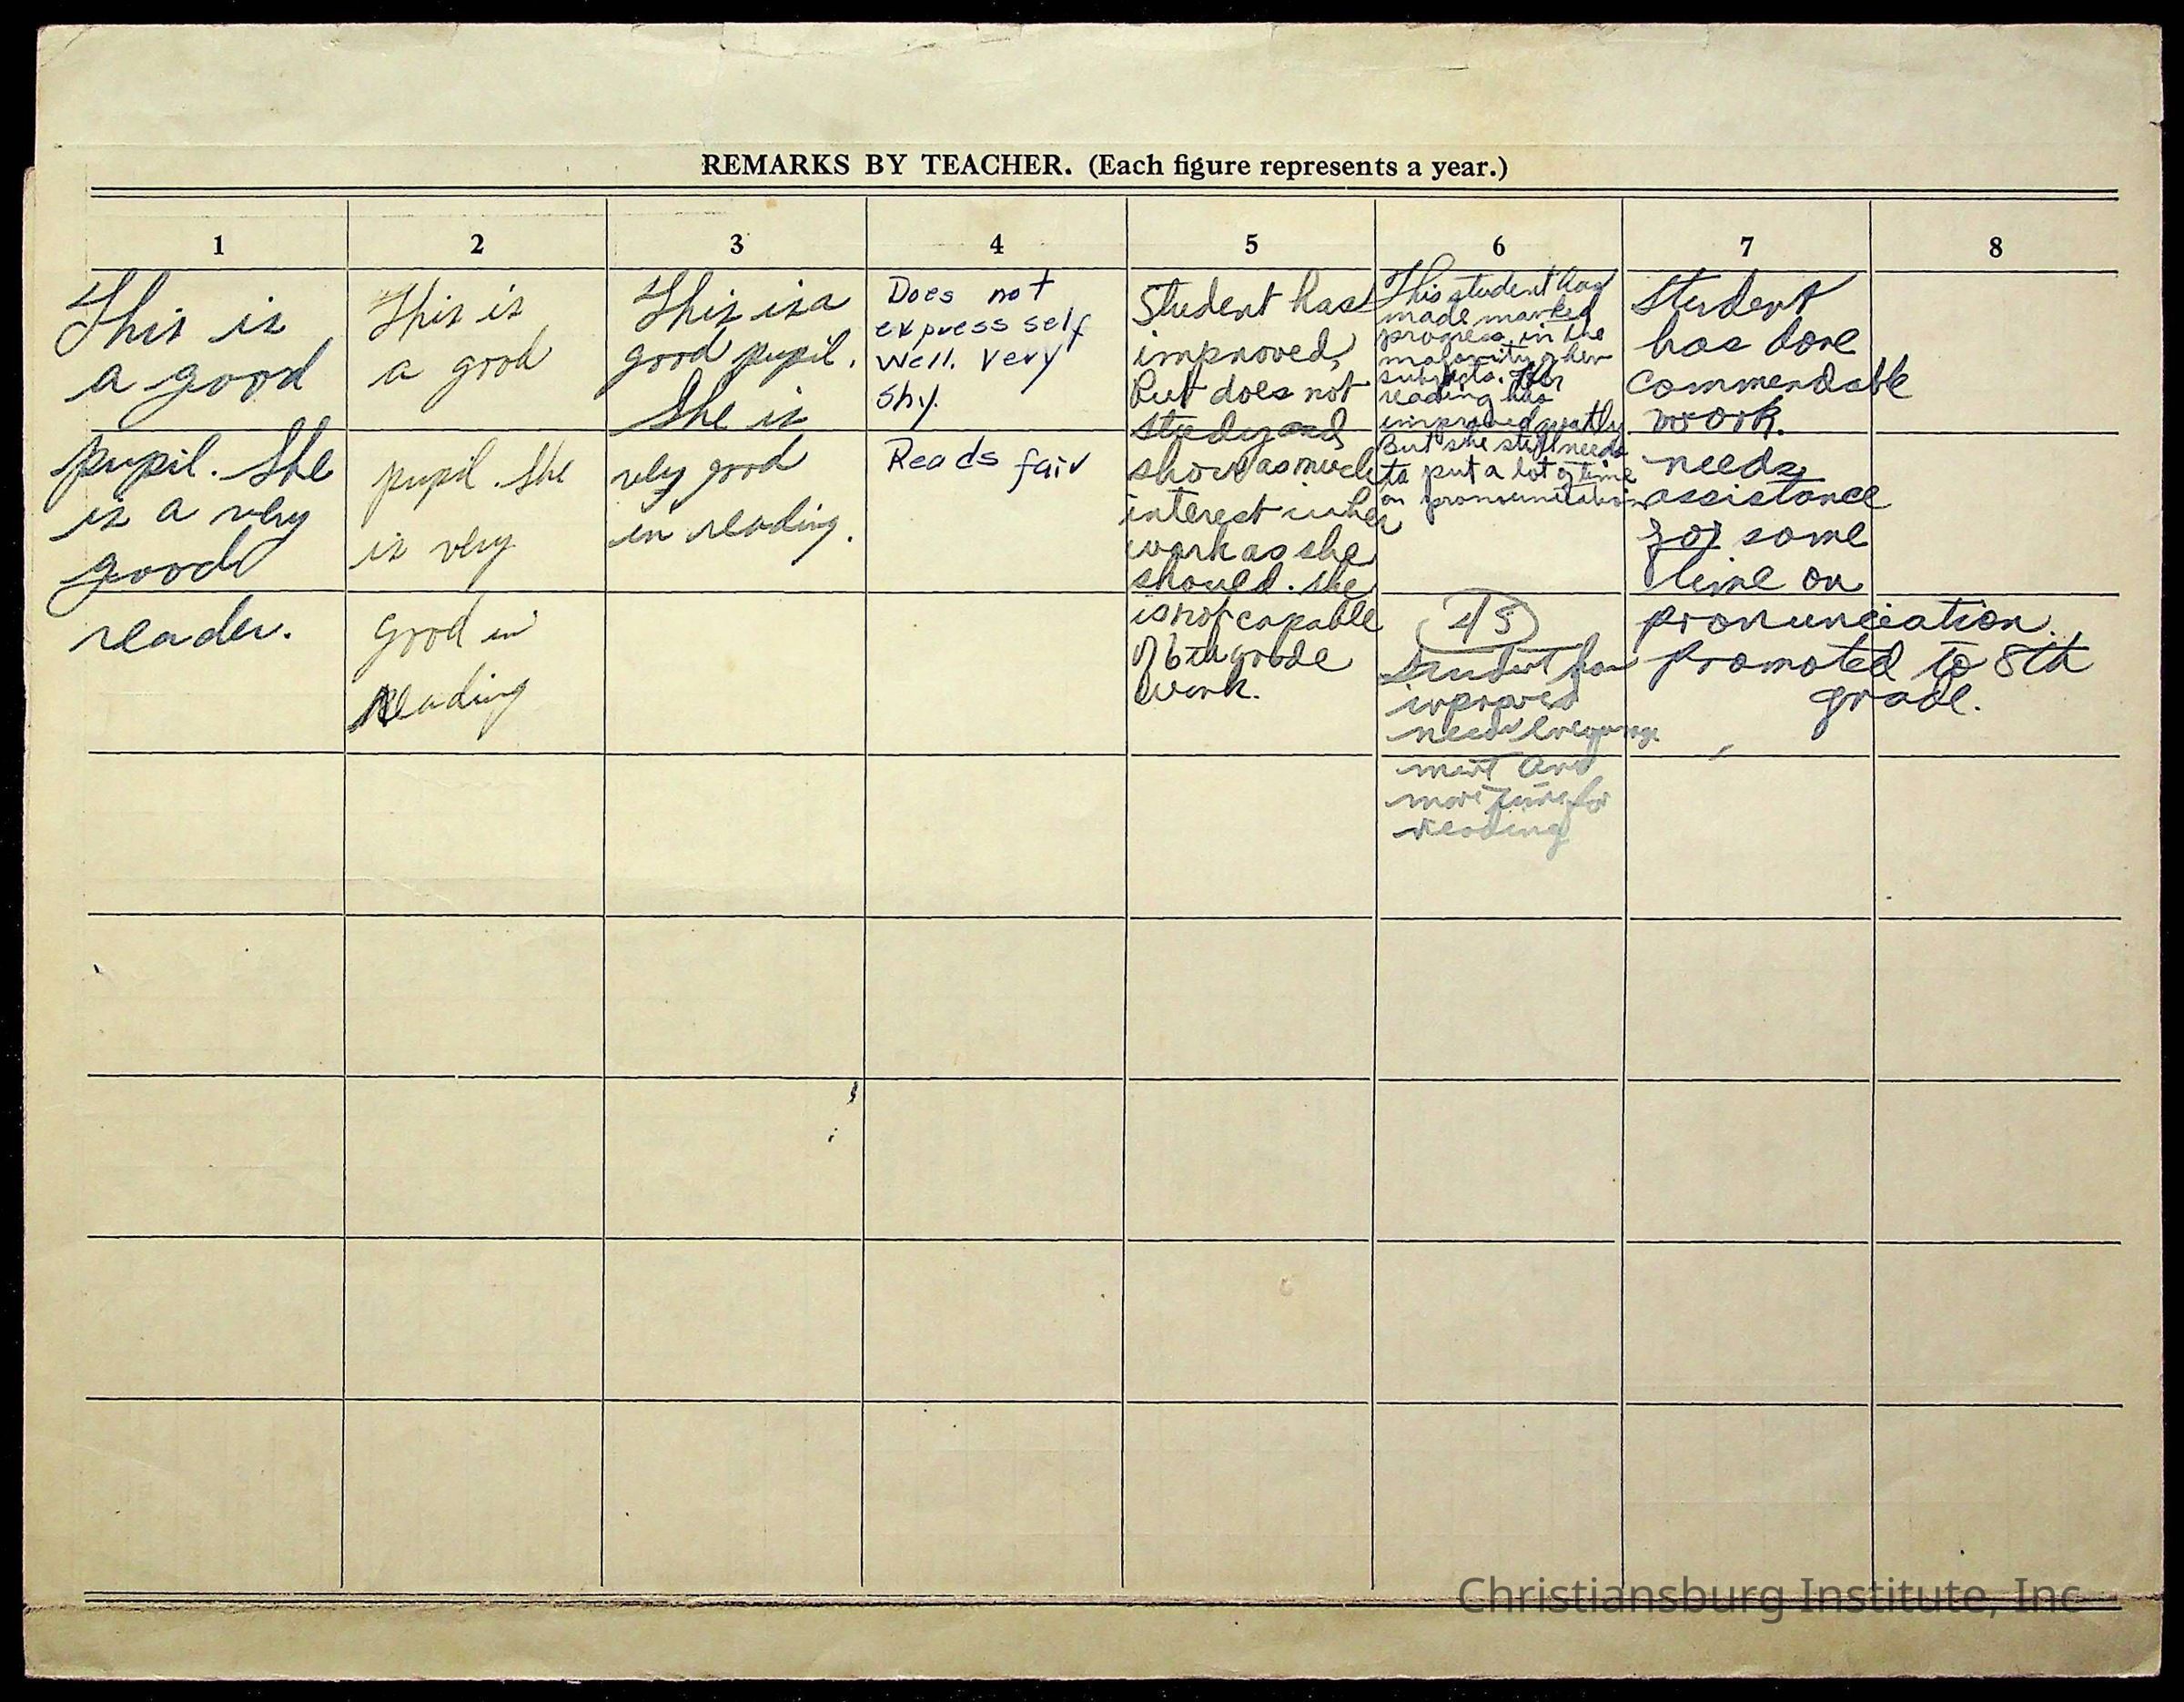 REMARKS BY TEACHER. (Each figure represents a year.)
1
This is
a good
pupil. She
is a very
good
reader.
2
This is
a good
pupil. She
is very
good in
Reading
3
This is a
good pupil.
She is
very good
in reading.
4
Does not
express self
well. Very
shy.
Reads fair
5
Student has
improved,
but does not
study and
show as much
interest in her
work as she
should. She
is not capable
of 6th grade
work.
6
This student has
made marked
progress in the
majority of her
subjects. Her
reading has
improved greatly
But she still needs
to put a lot of time
on pronunciation
45
Student has
improved
need encourage
ment and
more time for
reading
7
Student
has done
commendable
work.
needs
assistance
for some
time on
pronunciation.
Promoted to 8th
grade.
8
Christiansburg Institute, Inc